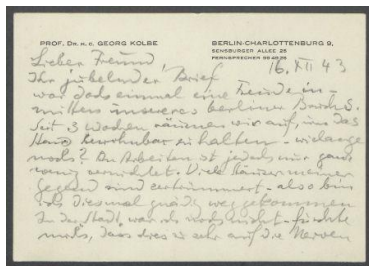 PROF. DR. H. C. GEORG KOLBE
BERLIN-CHARLOTTENBURG 9,
SENSBURGER ALLEE 25
FERNSPRECHER
16. XII 43
Lieber Freund,
Ihr jubelnder Brief
war das einmal eine Freude in-
mitten unseres berliner
Seit 3 Wochen räumen wir auf, um das
Haus bewohnbar zu halten - wielange
noch? An Arbeiten ist jedoch nur ganz
wenig vernichtet. Viele Häuser meiner
Gegend sind zertrümmert - also bin
ich diesmal gnädig weggekommen
In der Stadt war ich noch nicht - fürchte
mich, dass dies zu sehr auf die Nerven